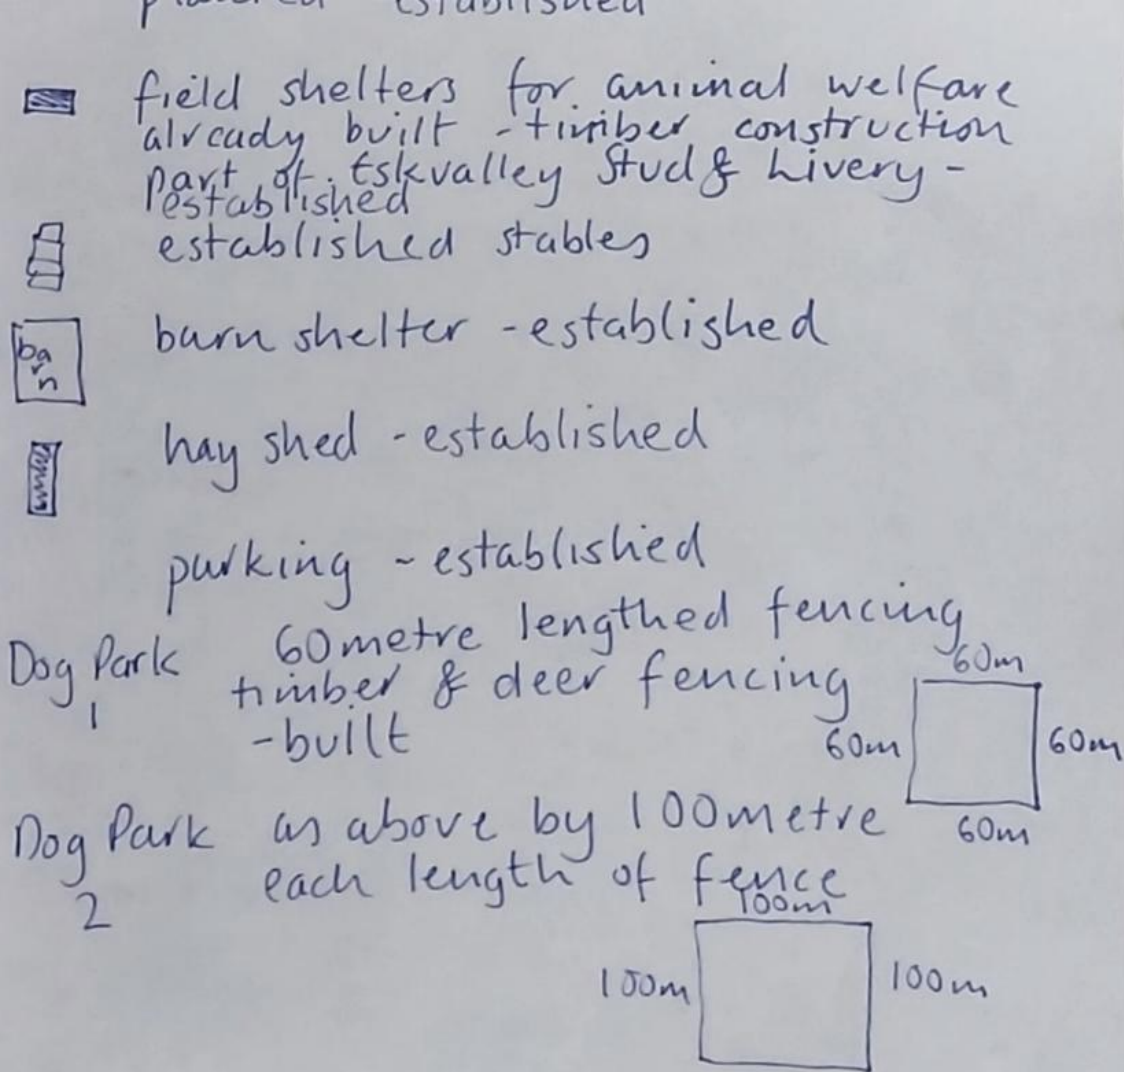 established
field shelters for animal welfare
already built - timber construction
part of Eskvalley Stud & Livery -
established
established stables
barn shelter - established
barn
hay shed - established
parking - established
Dog Park 1
60metre lengthed fencing
timber & deer fencing
- built
60m
60m
60m
60m
Dog Park 2
as above by 100metre
each length of fence
100m
100m
100m